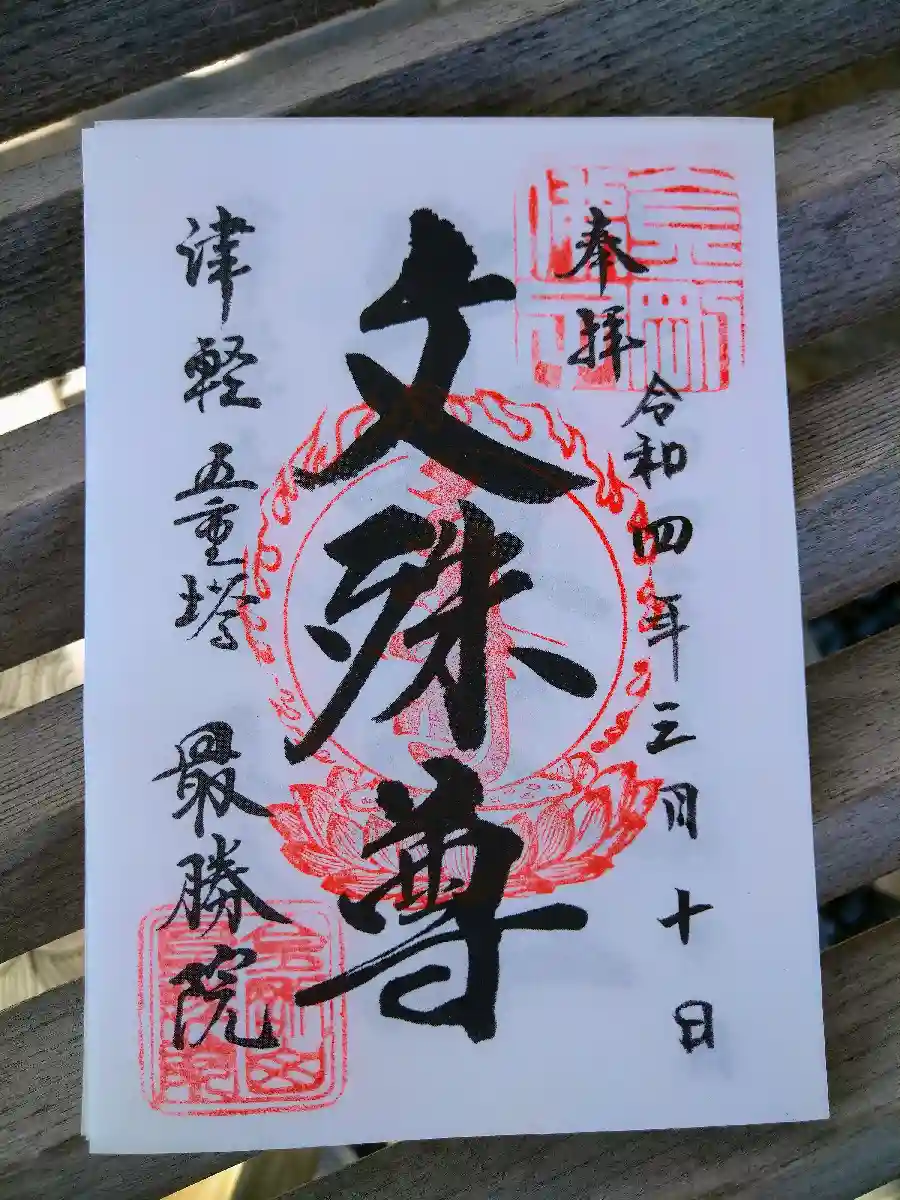 奉拝
令和四年三月十日
文殊尊
津軽五重塔 最勝院